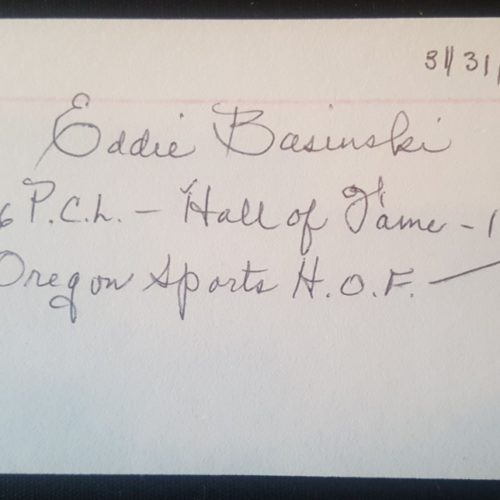 3/31/
Eddie Basinski
6 P.C.L. - Hall of Fame - 1
Oregon Sports H.O.F. -